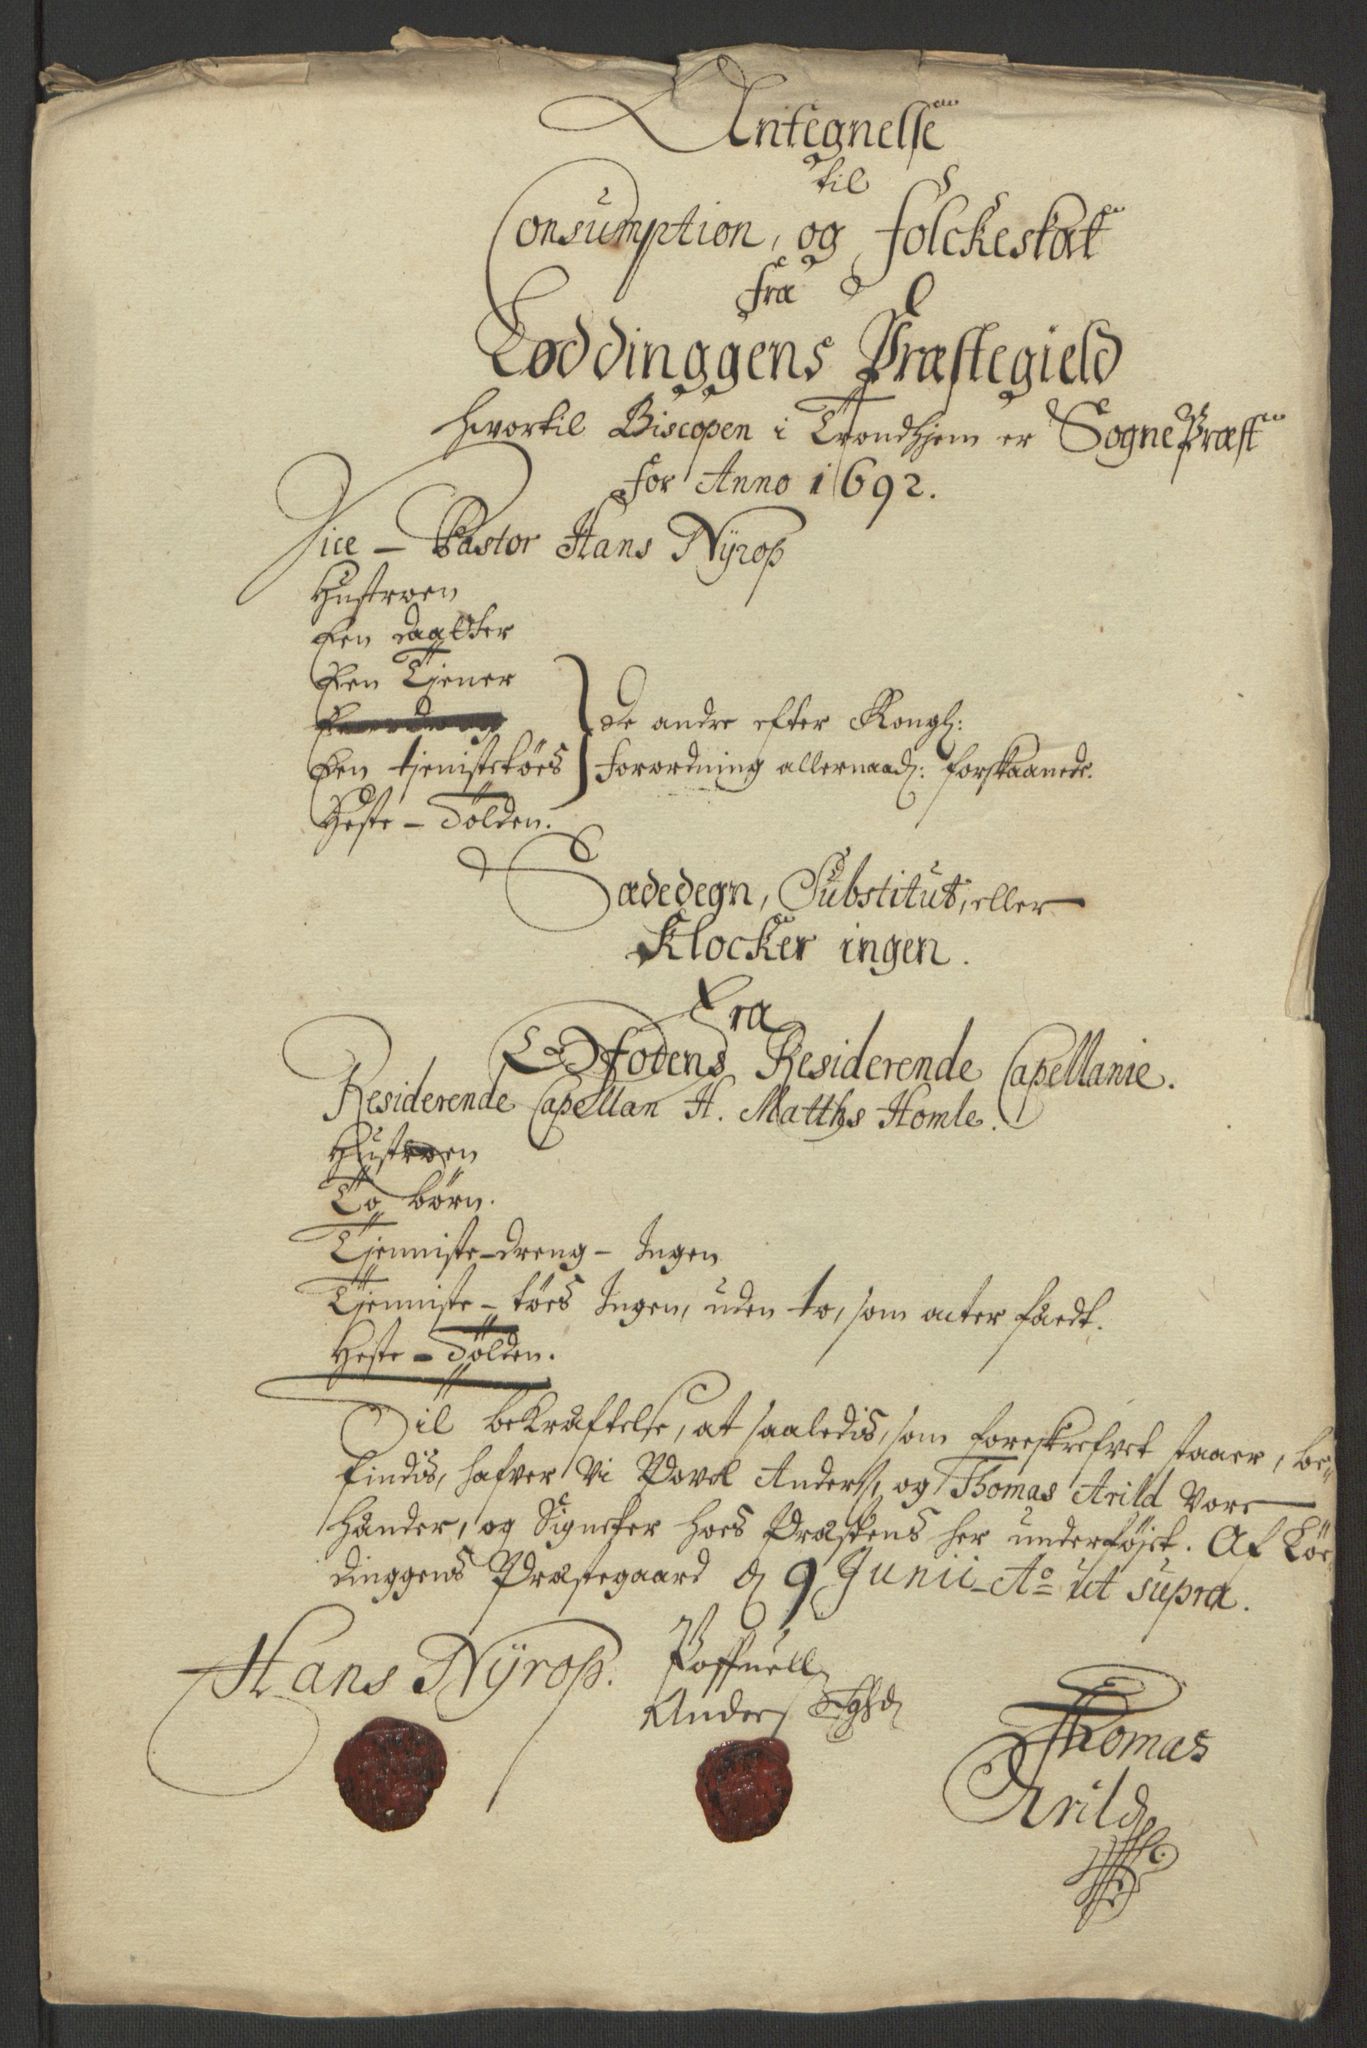 Antegnelse
til
Consumption, og folckeskat
fra
Loddinggens Præstegield
hvortil Biscopen i Trondhjem er Sognepræst
for Anno 1692.
Vice - Pastor Hans Nÿrop
Hustroen
Een daatter
Een Tjener
Een tjenistetöes
Heste - Tolden.
De andre efter Kongl:
forordning allernaad: forskaanede.
Sædedegn, Substitut, eller
Klocker ingen.
Fra
Ofodens Residerende Capellanie.
Residerende Capellan H. Matths Homle.
Hustroen
To börn.
Tjenniste-dreng - Ingen
Tjenniste - töes Ingen, uden to, som acter faedt.
Heste - Tolden.
Til bekræftelse, at saaledis, som foreskrefvet staaer, be-
findis, hafver Vi Povel Anders, og Thomas Arild Vore
hænder, og Signeter hoes Præstens her underföjet. Af Löe-
dinggens Præstegaard d 9 Junii Ao ut supra.
Hans Nÿrop.
Poffuell
Anders
Thomas
Arild